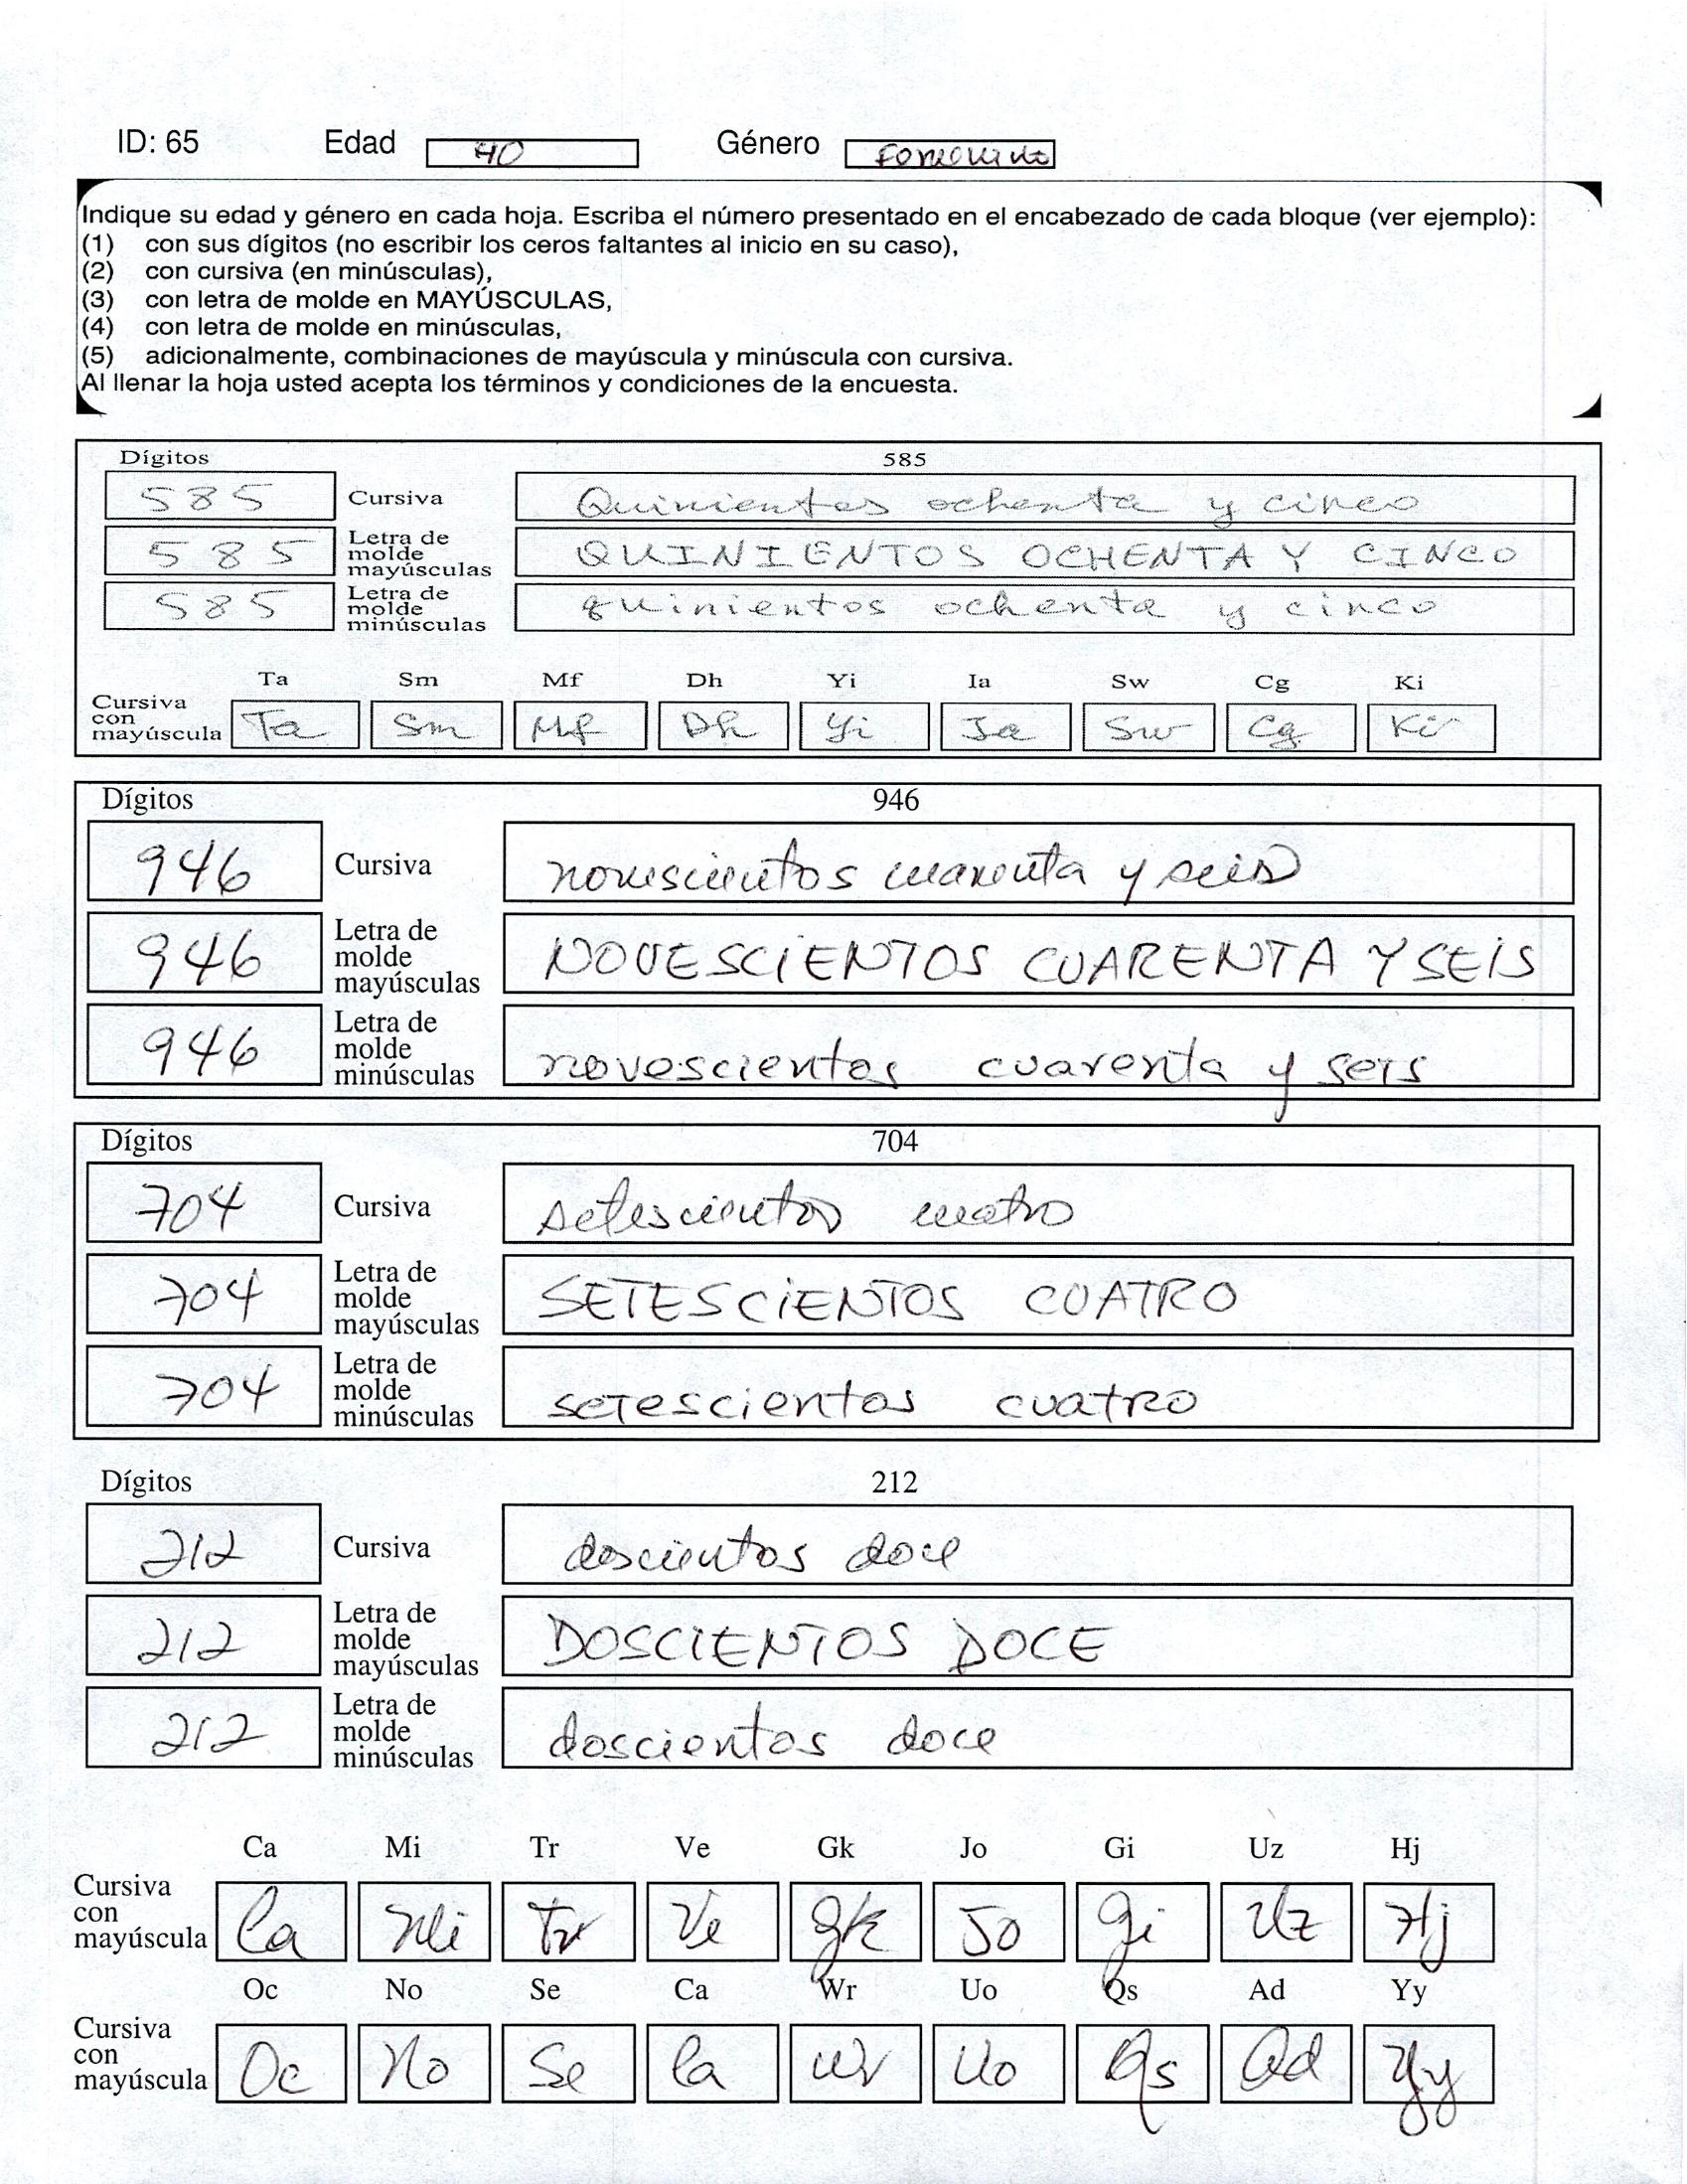 ID: 65 Edad 40 Género Femenino
Indique su edad y género en cada hoja. Escriba el número presentado en el encabezado de cada bloque (ver ejemplo):
(1) con sus dígitos (no escribir los ceros faltantes al inicio en su caso),
(2) con cursiva (en minúsculas),
(3) con letra de molde en MAYÚSCULAS,
(4) con letra de molde en minúsculas,
(5) adicionalmente, combinaciones de mayúscula y minúscula con cursiva.
Al llenar la hoja usted acepta los términos y condiciones de la encuesta.
Dígitos 585
585 Cursiva Quinientos ochenta y cinco
585 Letra de molde mayúsculas QUINIENTOS OCHENTA Y CINCO
585 Letra de molde minúsculas quinientos ochenta y cinco
Ta Sm Mf Dh Yi Ia Sw Cg Ki
Cursiva con mayúscula Ta Sm Mf Dh Yi Ia Sw Cg Ki
Dígitos 946
946 Cursiva novescientos cuarenta y seis
946 Letra de molde mayúsculas NOVESCIENTOS CUARENTA Y SEIS
946 Letra de molde minúsculas novescientos cuarenta y seis
Dígitos 704
704 Cursiva setescientos cuatro
704 Letra de molde mayúsculas SETESCIENTOS CUATRO
704 Letra de molde minúsculas setescientos cuatro
Dígitos 212
212 Cursiva doscientos doce
212 Letra de molde mayúsculas DOSCIENTOS DOCE
212 Letra de molde minúsculas doscientos doce
Ca Mi Tr Ve Gk Jo Gi Uz Hj
Cursiva con mayúscula Ca Mi Tr Ve Gk Jo Gi Uz Hj
Oc No Se Ca Wr Uo Qs Ad Yy
Cursiva con mayúscula Oc No Se Ca Wr Uo Qs Ad Yy